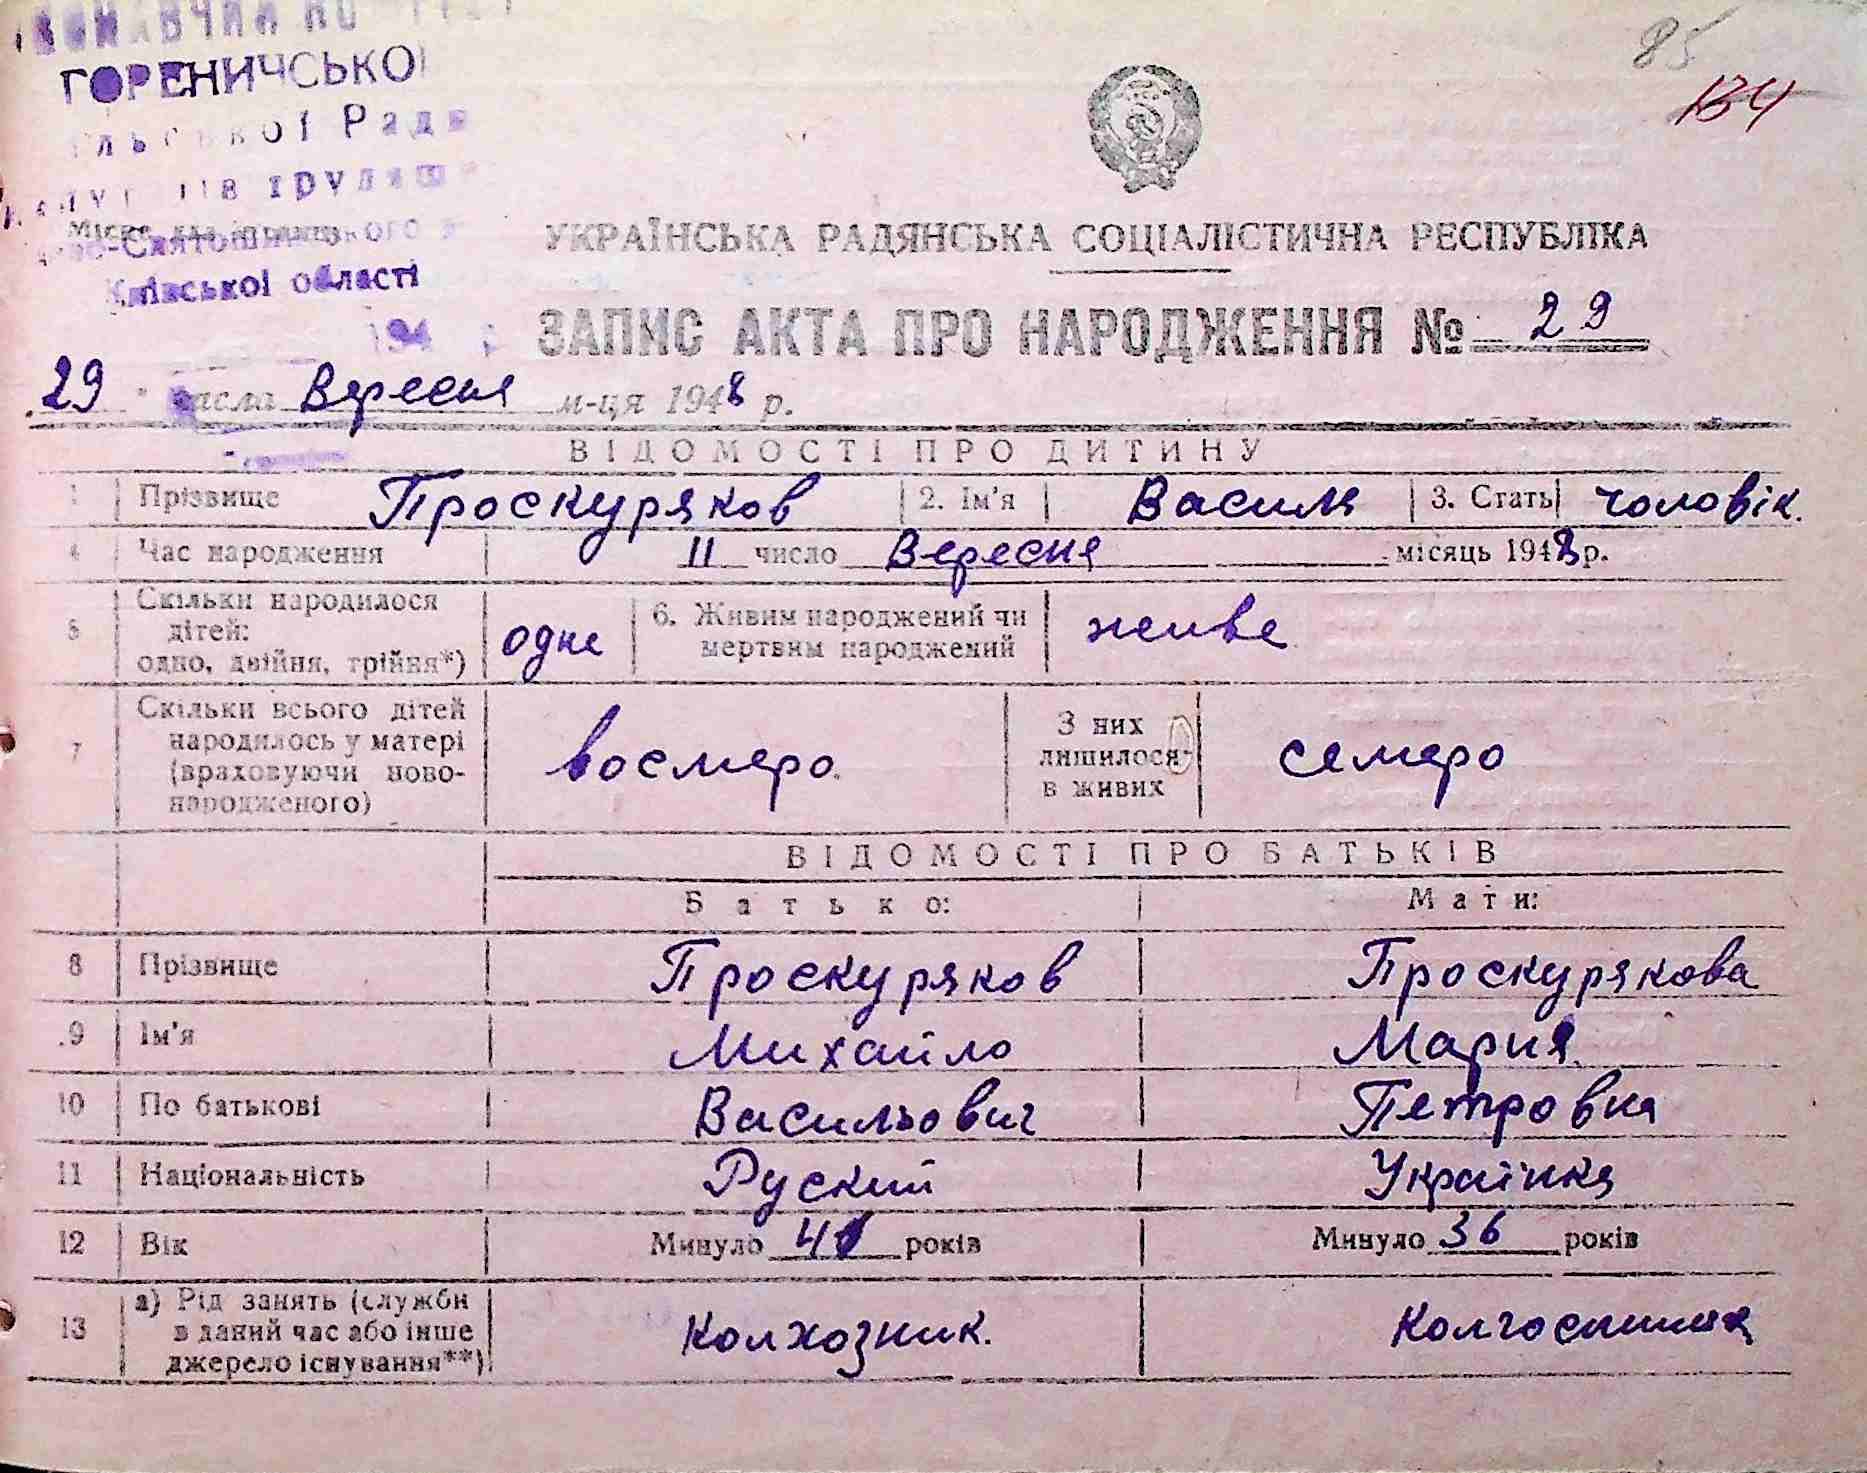 85
134
ГОРЕНИЧСЬКОЇ
Київської області
194
УКРАЇНСЬКА РАДЯНСЬКА СОЦІАЛІСТИЧНА РЕСПУБЛІКА
ЗАПИС АКТА ПРО НАРОДЖЕННЯ № 29
29 числа Вересня м-ця 1948 р.
ВІДОМОСТІ ПРО ДИТИНУ
1 Прізвище Проскуряков 2. Ім'я Василь 3. Стать чоловік.
4 Час народження 11 число Вересня місяць 1948 р.
5 Скільки народилося
дітей:
одно, двійня, трійня*) одне 6. Живим народжений чи
мертвим народжений живе
7 Скільки всього дітей
народилось у матері
(враховуючи ново-
народженого) восмеро З них
лишилося
в живих семеро
ВІДОМОСТІ ПРО БАТЬКІВ
Батько: Мати:
8 Прізвище Проскуряков Проскурякова
9 Ім'я Михайло Мария
10 По батькові Васильович Петровна
11 Національність Руский Українка
12 Вік Минуло 41 років Минуло 36 років
13 а) Рід занять (служби
в даний час або інше
джерело існування**) Колхозник. Колгоспниця